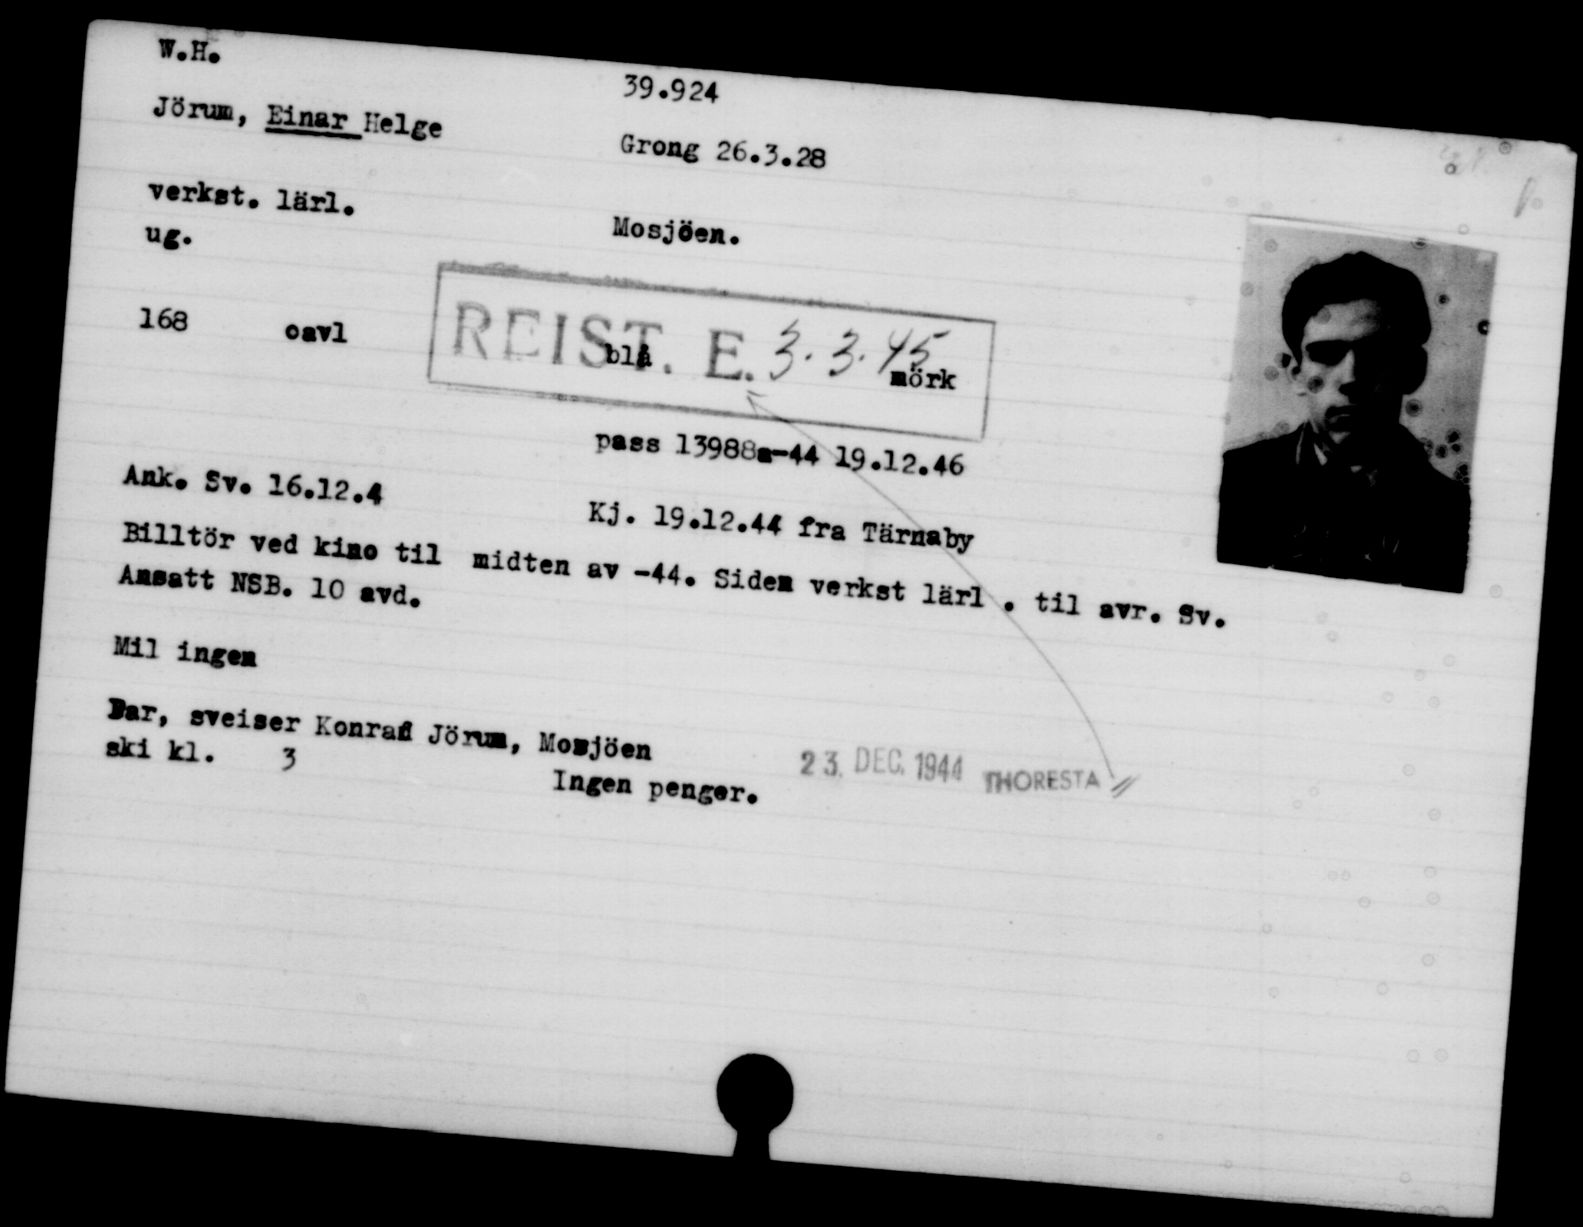 W.H.
39.924
Jörum, Einar Helge
Grong 26.3.28
verkst. lärl.
Mosjöen.
ug.
168 oavl blå mörk
REIST. E. 3.3.45
pass 13988a-44 19.12.46
Ank. Sv. 16.12.4
Kj. 19.12.44 fra Tärnaby
Billtör ved kino til midten av -44. Siden verkst lärl . til avr. Sv.
Ansatt NSB. 10 avd.
Mil ingen
Far, sveiser Konrad Jörum, Mosjöen
ski kl. 3
Ingen penger.
23. DEC. 1944 THORESTA